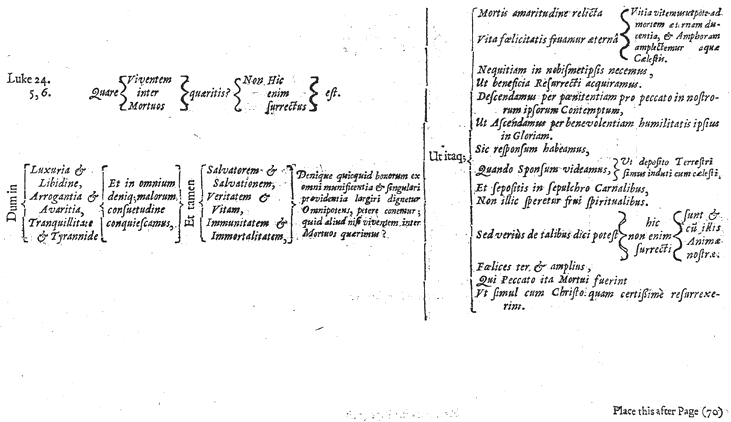 Luke 24.
5, 6.
Quare
Viventem
inter
Mortuos
quæritis?
Non Hic
enim
ſurrectus
eſt.
Dum in
Luxuria &
Libidine,
Arrogantia &
Avaritia,
Tranquillitate
& Tyrannide
Et in omnium
deniq; malorum
conſuetudine
conquieſcamus,
Et tamen
Salvatorem &
Salvationem,
Veritatem &
Vitam,
Immunitatem &
Immortalitatem,
Denique quicquid bonorum ex
omni munificentia & ſingulari
providentia largiri dignetur
Omnipotens, petere conemur;
quid aliud niſi viventem inter
Mortuos quærimus?
Ut itaq;
Mortis amaritudine relicta
Vita fœlicitatis fruamur æternâ
Vitia vitemus utpote ad
mortem æternam du-
centia, & Amphoram
amplectemur aquæ
Cæleſtis.
Nequitiam in nobiſmetipſis necemus,
Ut beneficia Reſurrecti acquiramus.
Deſcendamus per pœnitentiam pro peccato in noſtro-
rum ipſorum Contemptum,
Ut Aſcendamus per benevolentiam humilitatis ipſius
in Gloriam.
Sic reſponſum habeamus,
Quando Sponſum videamus,
Ut depoſito Terreſtri
ſimus induti cum cæleſti.
Et ſepoſitis in ſepulchro Carnalibus,
Non illic ſperetur frui ſpiritualibus.
Sed veriùs de talibus dici poteſt
hic
non enim
ſurrecti
ſunt &
cũ illis
Animæ
noſtræ.
Fœlices ter & amplius,
Qui Peccato ita Mortui fuerint
Vt ſimul cum Chriſto quam certiſſimè reſurrexe-
rint.
Place this after Page (70)